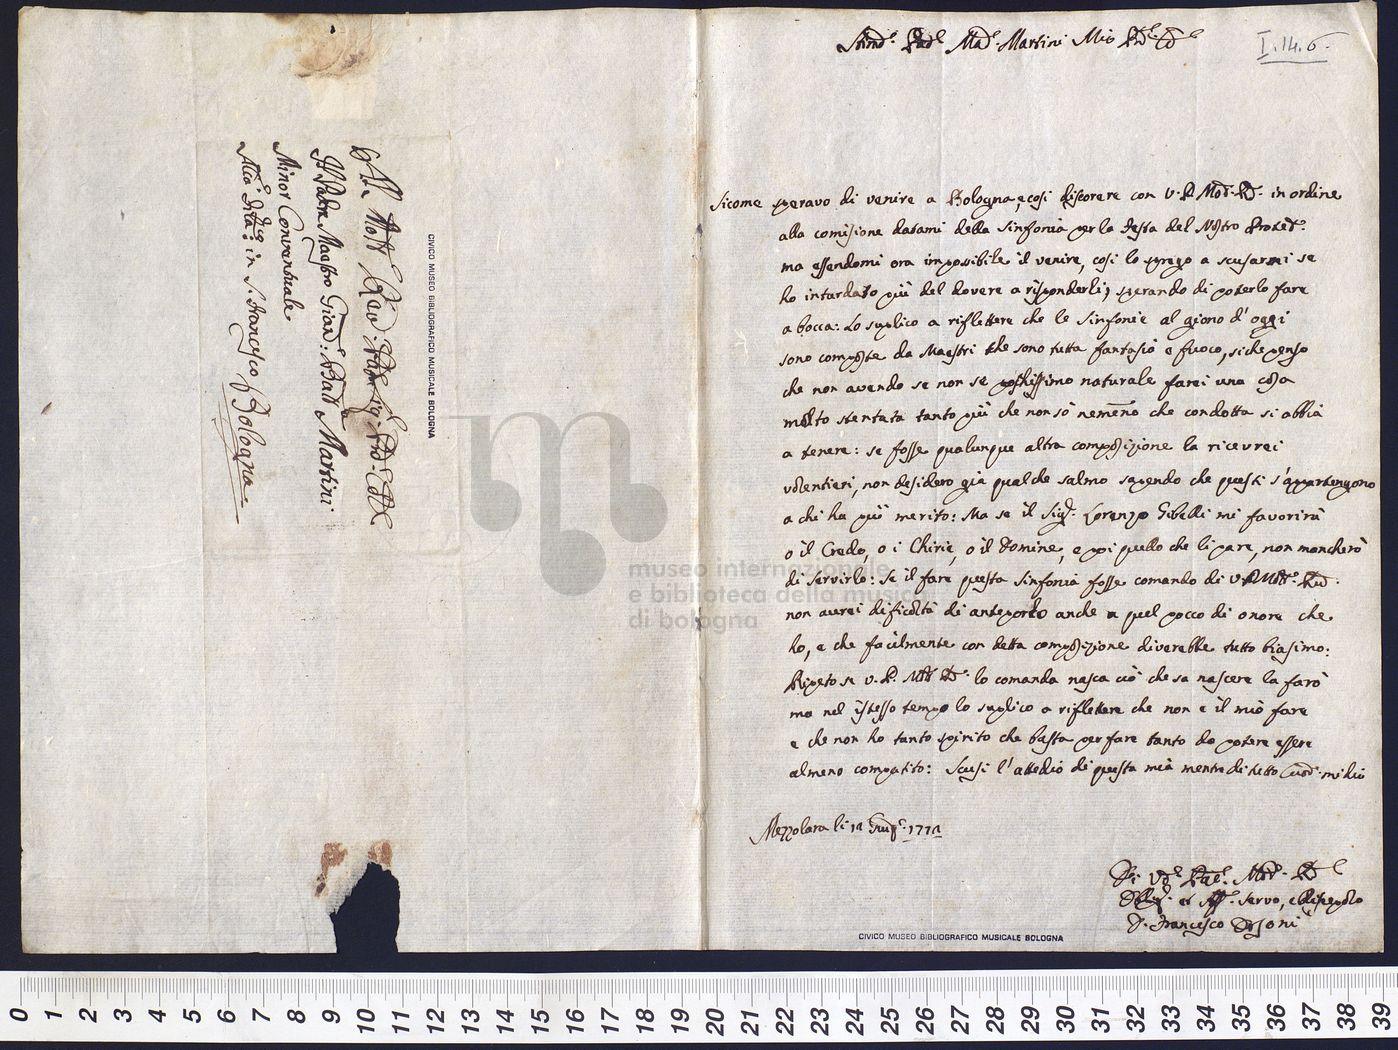 Al Molt Rev:
Il Padre Maestro Giam: Batt̃a Martini
Minor Conventuale
in S. Francesco Bologna
CIVICO MUSEO BIBLIOGRAFICO MUSICALE BOLOGNA
Pad.e Mad.e Martini Mio
I.14.6.
Sicome speravo di venire a Bologna, e cosi discorere con V. P. in ordine
alla comisione datami della sinfonia per la festa del Nostro Protet.e
ma essendomi ora imposibile il venire, cosi lo prego a scusarmi se
ho intardato più del dovere a risponderli, sperando di poterlo fare
a bocca: Lo suplico a riflettere che le Sinfonie al giono d'oggi
sono composte da Maestri che sono tutta fantasia e fuoco, siche penso
che non avendo se non se pochissimo naturale farei una cosa
molto stentata tanto più che non sò nemeno che condotta si abbia
a tenere: se fosse qualunque altra composizione la ricevrei
volentieri, non desidero già qualche salmo sapendo che questi s'appartengono
a chi ha più merito: Ma se il Sig.r Lorenzo Gibelli mi favorirà
o il Credo, o i Chirie, o il Domine, e poi quello che li pare, non mancherò
di servirlo: se il fare questa sinfonia fosse comando di V. P.
non averei dificoltà di anteporlo anche a quel pocco di onore che
ho, e che facilmente con detta composizione diverebbe tutto biasimo:
Ripeto se V. P. lo comanda nasca ciò che sa nascere la farò
ma nel istesso tempo lo suplico a riflettere che non è il mio fare
e che non ho tanto spirito che basta per fare tanto da potere essere
almeno compatito: Scusi l'attedio di questa mia mentre di tutto Cuor mi dico
Mezzolara li 12 1772
Servo, e Discepolo
D. Francesco Orsoni
CIVICO MUSEO BIBLIOGRAFICO MUSICALE BOLOGNA
museo internazionale
e biblioteca della musica
di bologna
0 1 2 3 4 5 6 7 8 9 10 11 12 13 14 15 16 17 18 19 20 21 22 23 24 25 26 27 28 29 30 31 32 33 34 35 36 37 38 39